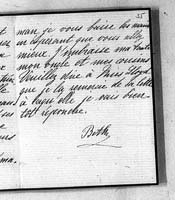 25
man je vous baise les mains
en esperant que vous allez
mieux. J'embrasse ma tante
mon oncle et mes cousins
Veuillez dire à Miss Lloyd
que je la remercie de sa lettre
à laquelle je vais bien
tôt répondre.